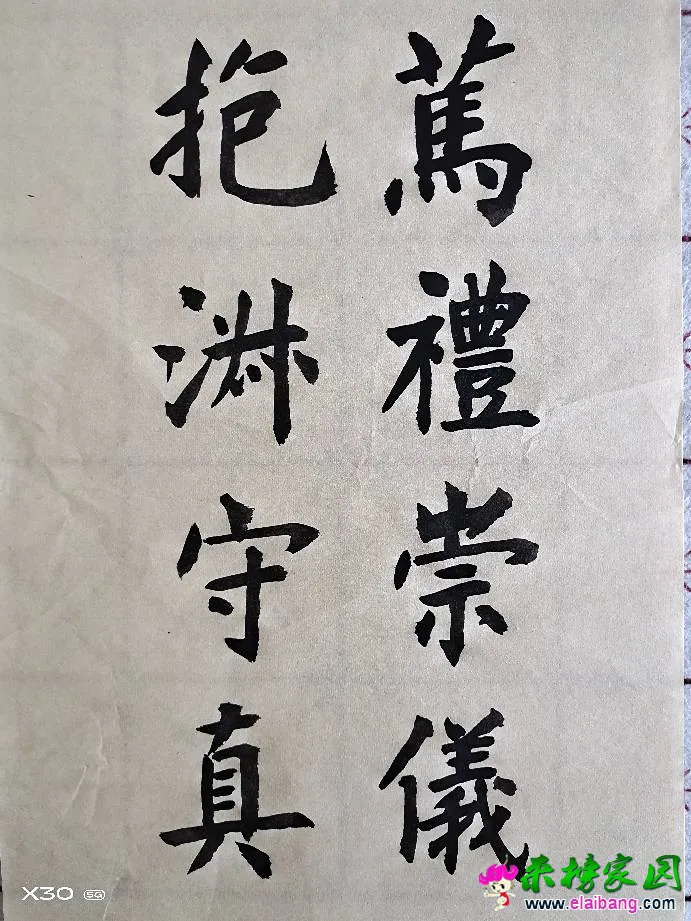 篤禮崇儀
抱守真
X30 5G
来榜家园
www.elaibang.com